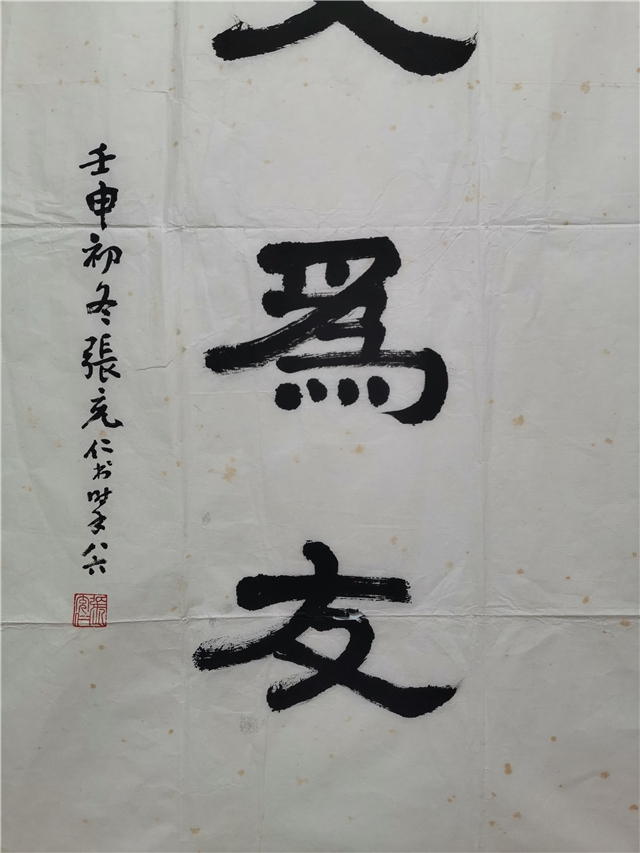 爲友
壬申初冬張充仁书时年八六